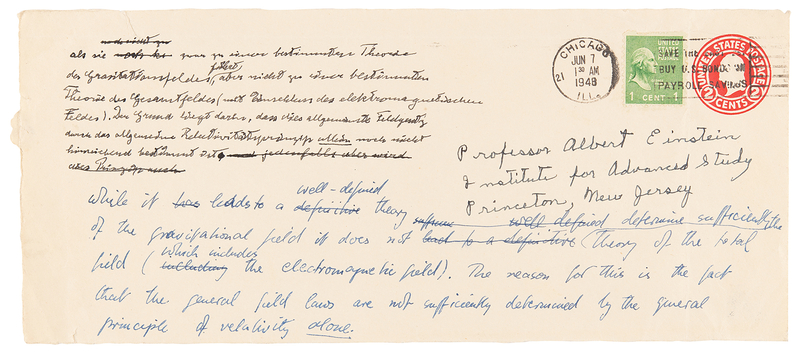 als sie zwar zu einer bestimmten Theorie
des Gravitationsfeldes führt, aber nicht zu einer bestimmten
Theorie des Gesamtfeldes (mit Einschluss des elektromagnetischen
Feldes). Der Grund liegt darin, dass dies allgemeine Feldgesetz
durch das allgemeine Relativitätsprinzip allein noch nicht
hinreichend bestimmt ist, und jedenfalls aber wird
das Prinzip auch
CHICAGO
21
JUN 7
1 30 AM
1948
ILL.
UNITED STATES POSTAGE
1 CENT 1
SAVE THE EASY
BUY U.S. BONDS
PAYROLL SAVINGS
UNITED STATES POSTAGE
2 CENTS 2
Professor Albert Einstein
Institute for Advanced Study
Princeton, New Jersey
well-defined
while it leads to a definitive theory well defined determine sufficiently the
of the gravitational field it does not lead to a definitive theory of the total
which includes
field (including the electromagnetic field). The reason for this is the fact
that the general field laws are not sufficiently determined by the general
principle of relativity alone.